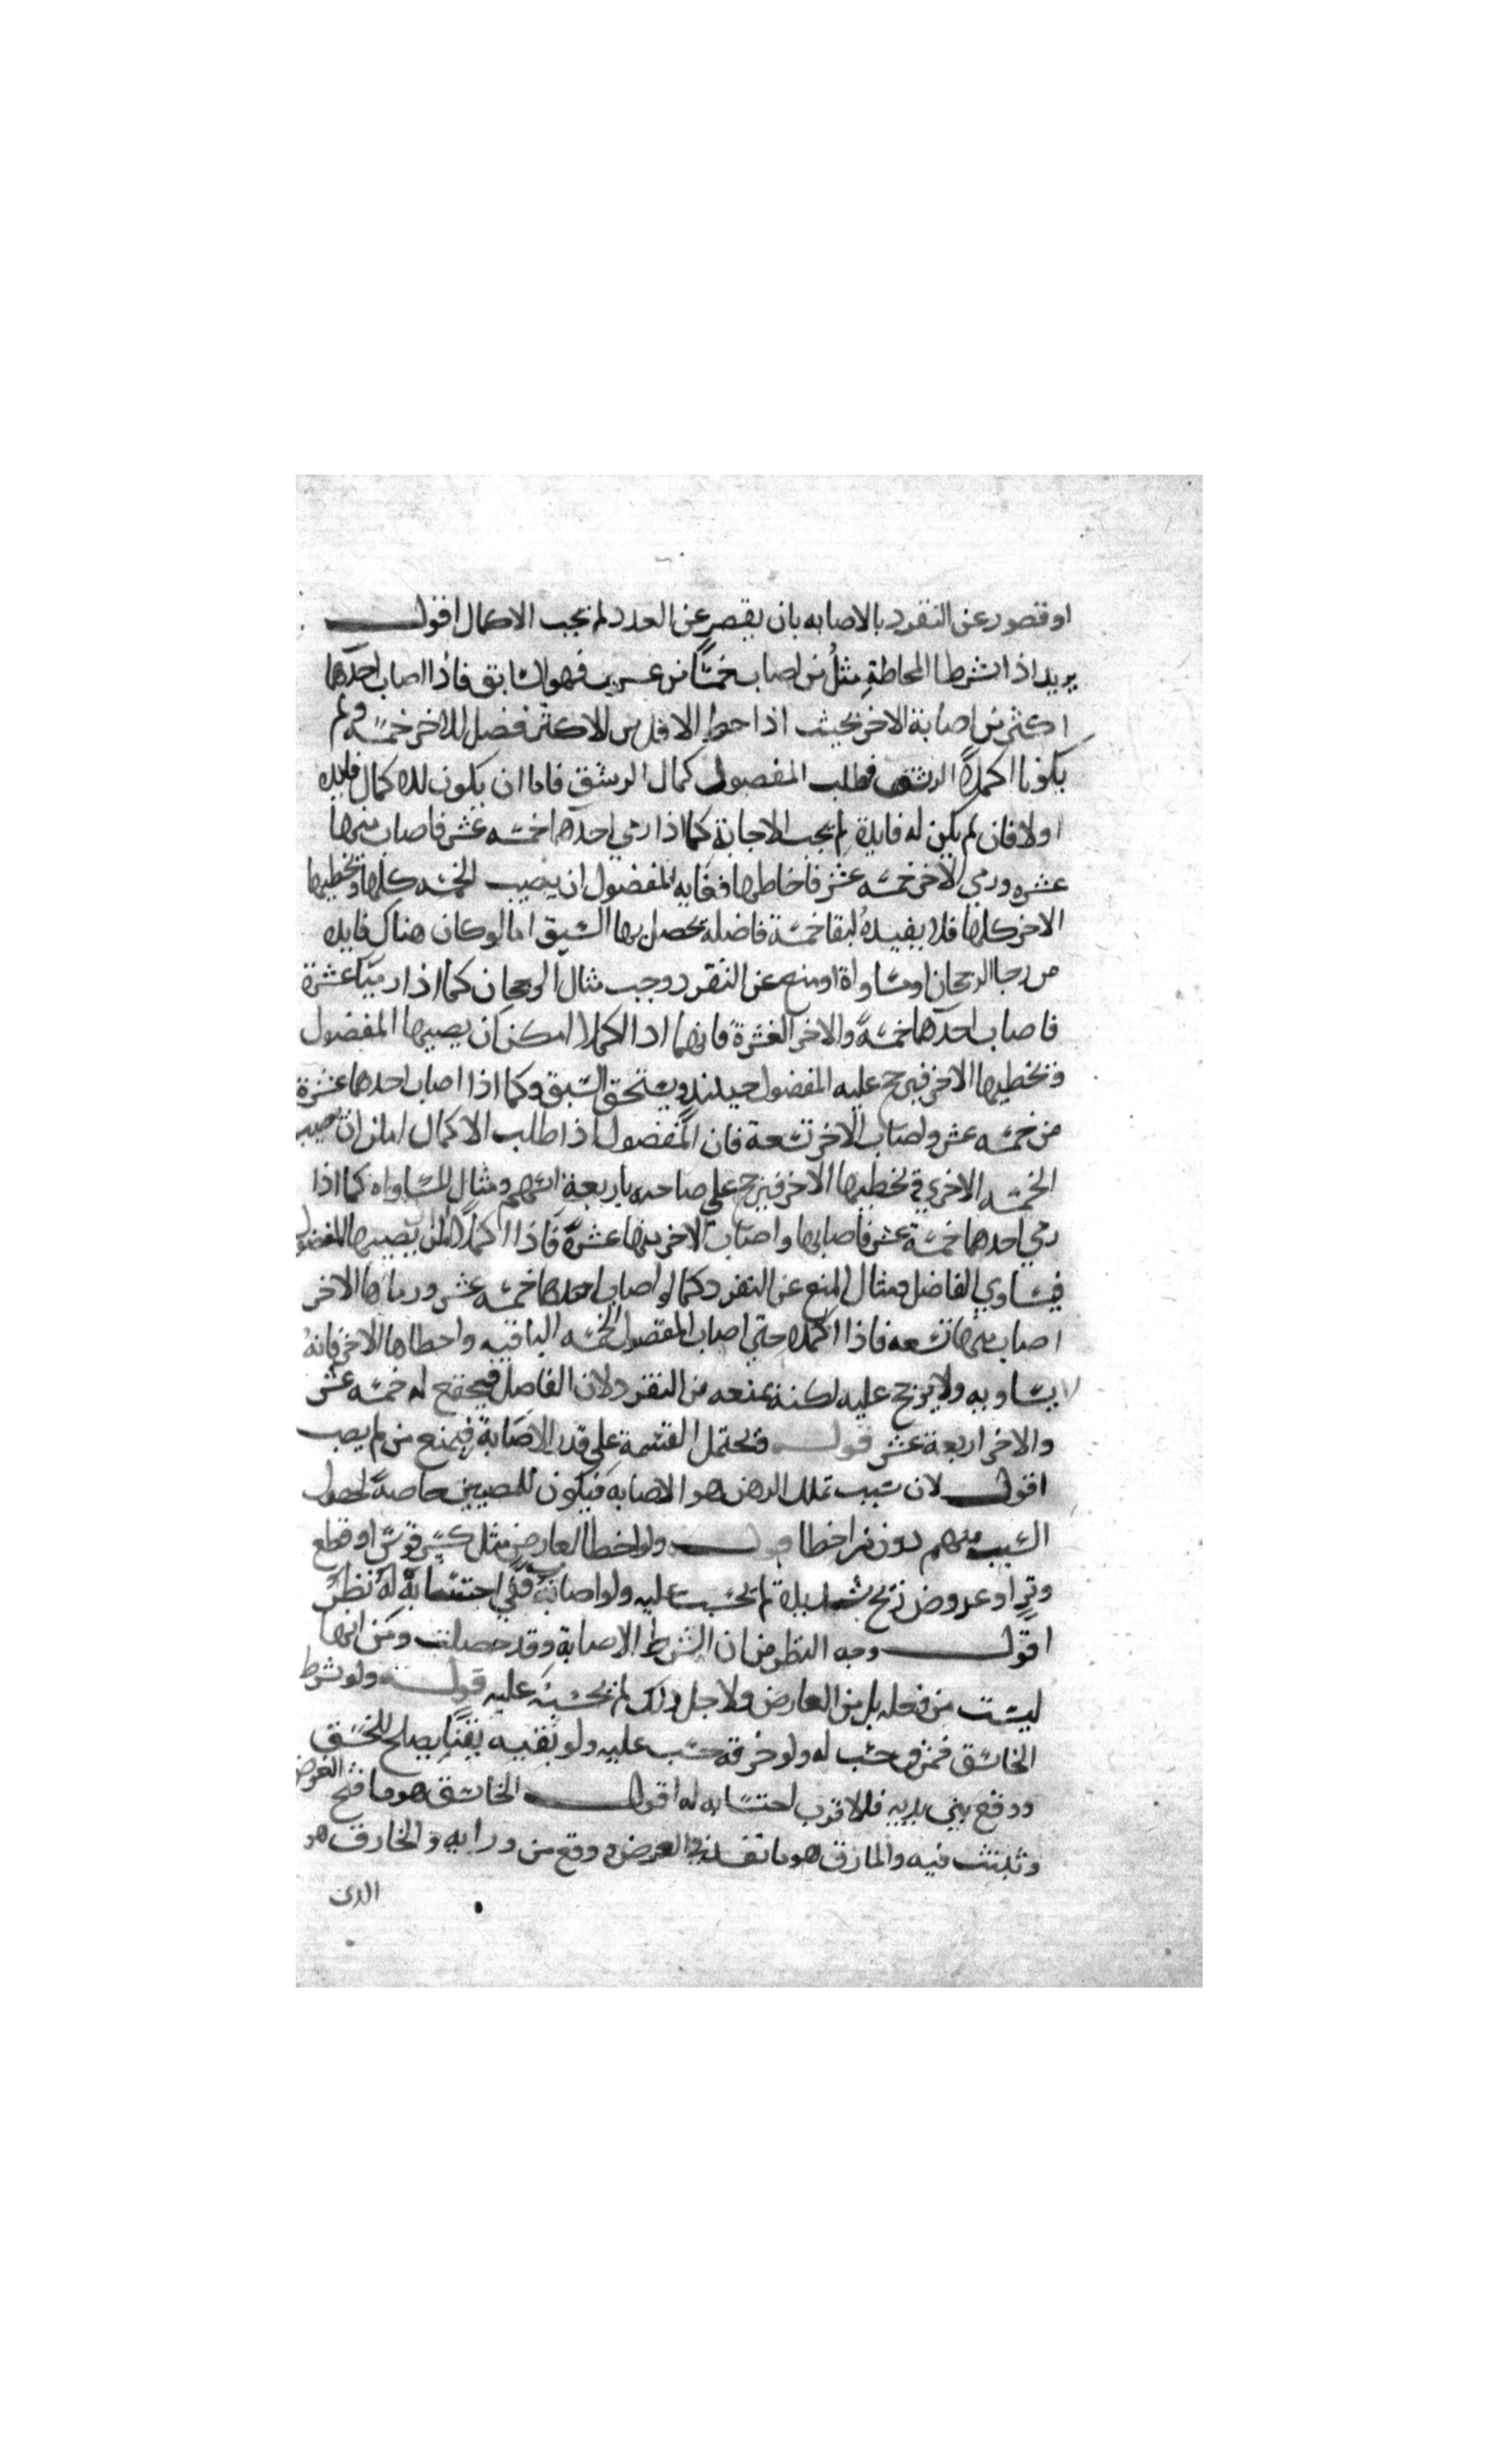 او قصور عن التفرد بالاصابه بان يقصر عن العدد لم تجب الاكمال اقول
يريد اذا شرطا المحاطة مثلُ من اصاب خمسًا من عشرين فهو السابق فاذا اصاب احدهما
اكثر من اصابة الاخر بحيث اذا حط الاقل من الاكثر فضل للاخر خمسة ولم
يكونا اكملا الرشق فطلب المفضول كمال الرشق فاما ان يكون له كمال فايده
اولا فان لم يكن له فايدة لم تجب الاجابة كما اذا رمي احدهما خمسه عشر فاصاب منها
عشره ورمي الاخر خمسه عشر فاخطاها فغايه المفضول ان يصيب الخمسه كلها ويخطيها
الاخر كلها فلا يفيدهُ لبقا خمسة فاضلة يحصل بها السبق اما لو كان هناك فايده
من رجا الرجحان او مساواة او منع عن التفرد وجب مثال الرجحان كما اذا رميا عشرة
فاصاب احدهما خمسةً والاخر العشرة فانهما اذا اكملا امكن ان يصيبها المفضول
ويخطيها الاخر فيرجح عليه المفضول حينئذ ويستحق السبق وكما اذا اصاب احدهما عشرة
من خمسه عشر واصاب الاخر تسعة فان المفضول اذا طلب الاكمال امكن ان يصيب
الخمسه الاخري ويخطيها الاخر فيرجح علي صاحبه باربعة اسهم ومثال المساواه كما اذا
رمي احدهما خمسة عشر فاصابها واصاب الاخر منها عشرة فاذا اكملا امكن يصيبها المفضول
فيساوي الفاضل ومثال المنع عن التفرد كما لو اصاب احدهما خمسه عشر ورماها الاخر
اصاب منها تسعه فاذا اكملا حتي اصاب المفضول الخمسه الباقيه واخطاها الاخر فانهُ
لا يساويه ولا يرجح عليه لكنه يمنعه من التفرد لان الفاضل فيجتمع له خمسه عشر
والاخر اربعة عشر قوله فيحتمل القسمة علي قدر الاصابة فيمنع من لم يصب
اقول لان سبب تملك الرهن هو الاصابه فيكون للمصيبين خاصةً لحصول
السبب منهم دون من اخطا قوله ولو اخطا لعارض مثل كسر قوسٍ او قطع
وترٍ او عروض ريح شديدة لم يحسب عليه ولو اصاب ففي احتسابه له نظر
اقول وجه النظر من ان الشرط الاصابة وقد حصلت ومن انها
ليست من فعله بل من العارض ولاجل ذلك لم يحسب عليه قوله ولو شرط
الخاسق فمزق حسب له ولو خرقه حسب عليه ولو ثقبه ثقبًا يصلح للخسق
ووقع بين يديه فالاقرب احتسابه له اقول الخاسق هو ما فتح الغرض
وثبتت فيه والمارق هو ما نفذ في الغرض ووقع من ورايه والخارق هو
الذي